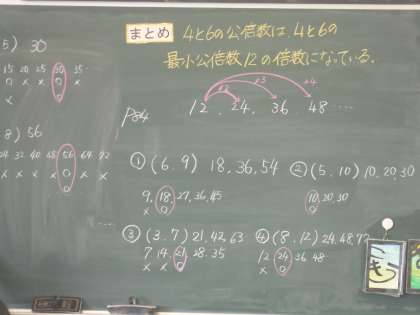 まとめ 4と6の公倍数は、4と6の
最小公倍数12の倍数になっている。
×2 ×3 ×4
12, 24, 36, 48 ....
P84
5) 30
15 20 25 30 35
○ × × ○ ×
×
○
8) 56
24 32 40 48 56 64 72
× × × × ○ × ×
○
....
① (6, 9) 18, 36, 54
9, 18, 27, 36, 45
× ○
② (5, 10) 10, 20, 30
10, 20, 30
○
③ (3, 7) 21, 42, 63
7, 14, 21, 28, 35
× × ○
④ (8, 12) 24, 48, 72
12 24 36 48
× ○